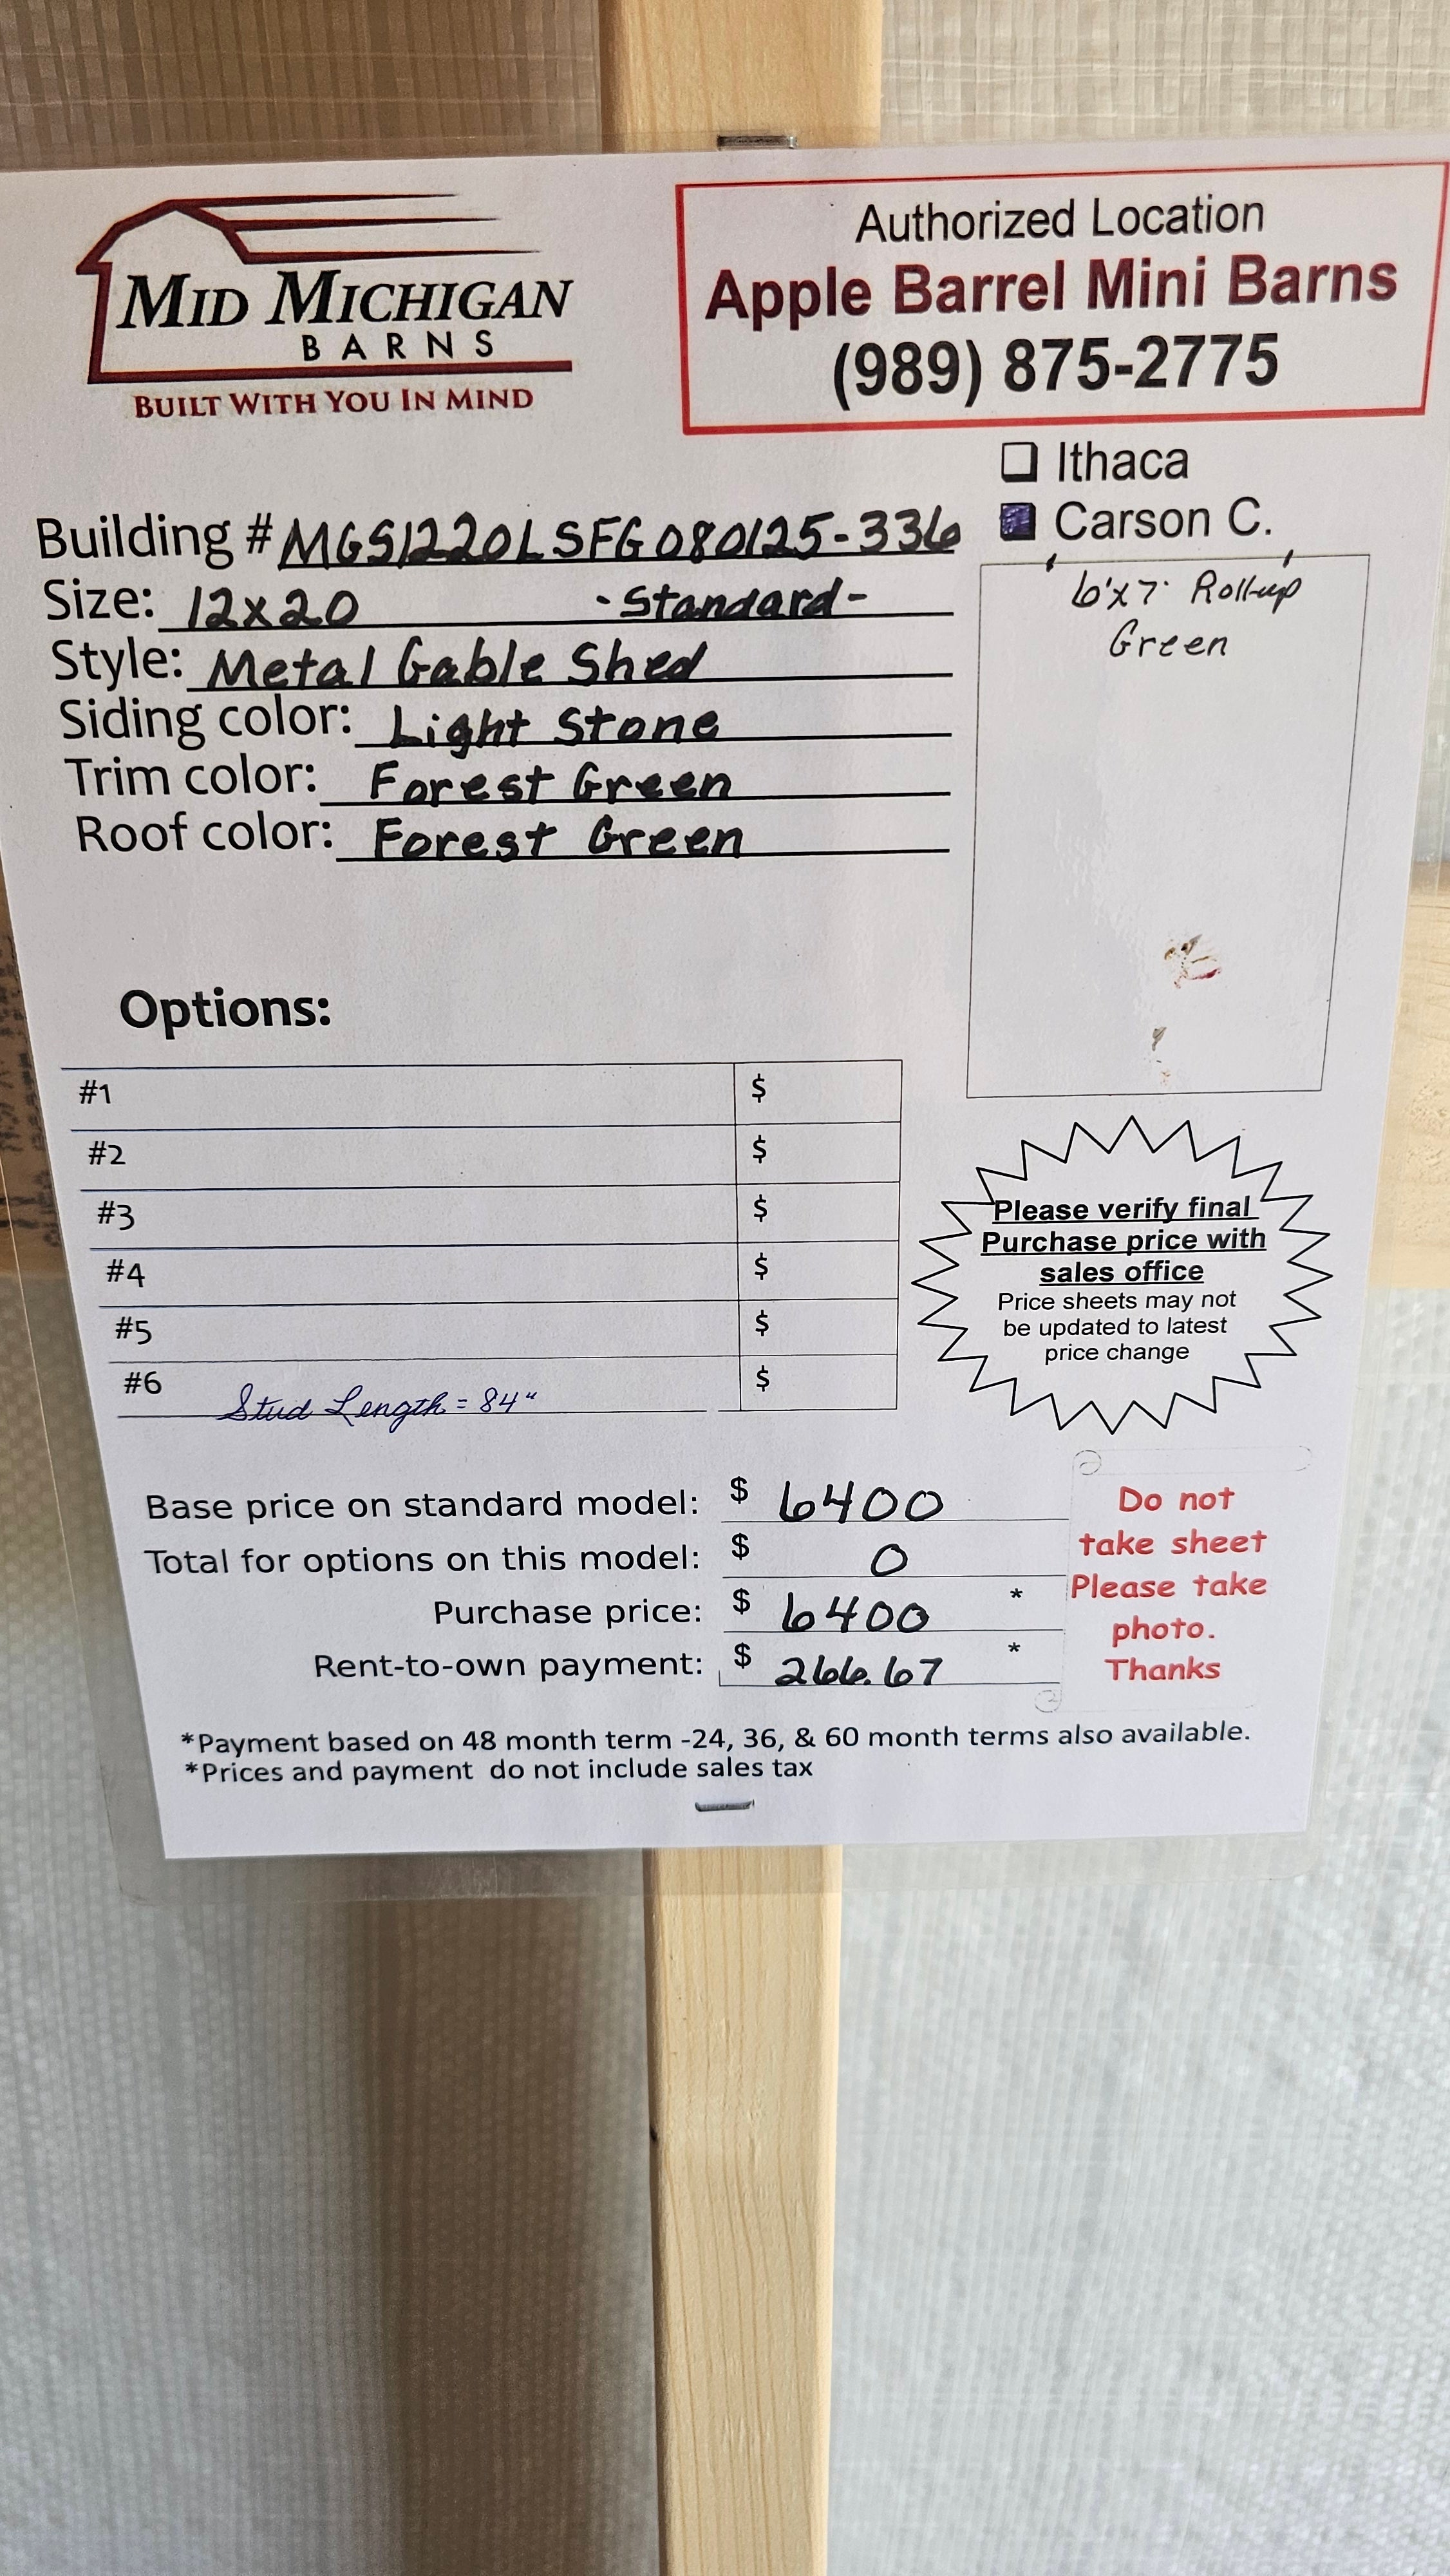 MID MICHIGAN
BARNS
BUILT WITH YOU IN MIND
Authorized Location
Apple Barrel Mini Barns
(989) 875-2775
Ithaca
Carson C.
Building # MGS1220LSFG080125-336
Size: 12x20 -Standard-
Style: Metal Gable Shed
Siding color: Light Stone
Trim color: Forest Green
Roof color: Forest Green
6'x7' Roll-up
Green
Options:
#1 $
#2 $
#3 $
#4 $
#5 $
#6 $
Stud Length = 84"
Please verify final
Purchase price with
sales office
Price sheets may not
be updated to latest
price change
Base price on standard model: $ 6400
Total for options on this model: $ 0
Purchase price: $ 6400 *
Rent-to-own payment: $ 266.67 *
Do not
take sheet
Please take
photo.
Thanks
*Payment based on 48 month term -24, 36, & 60 month terms also available.
*Prices and payment do not include sales tax